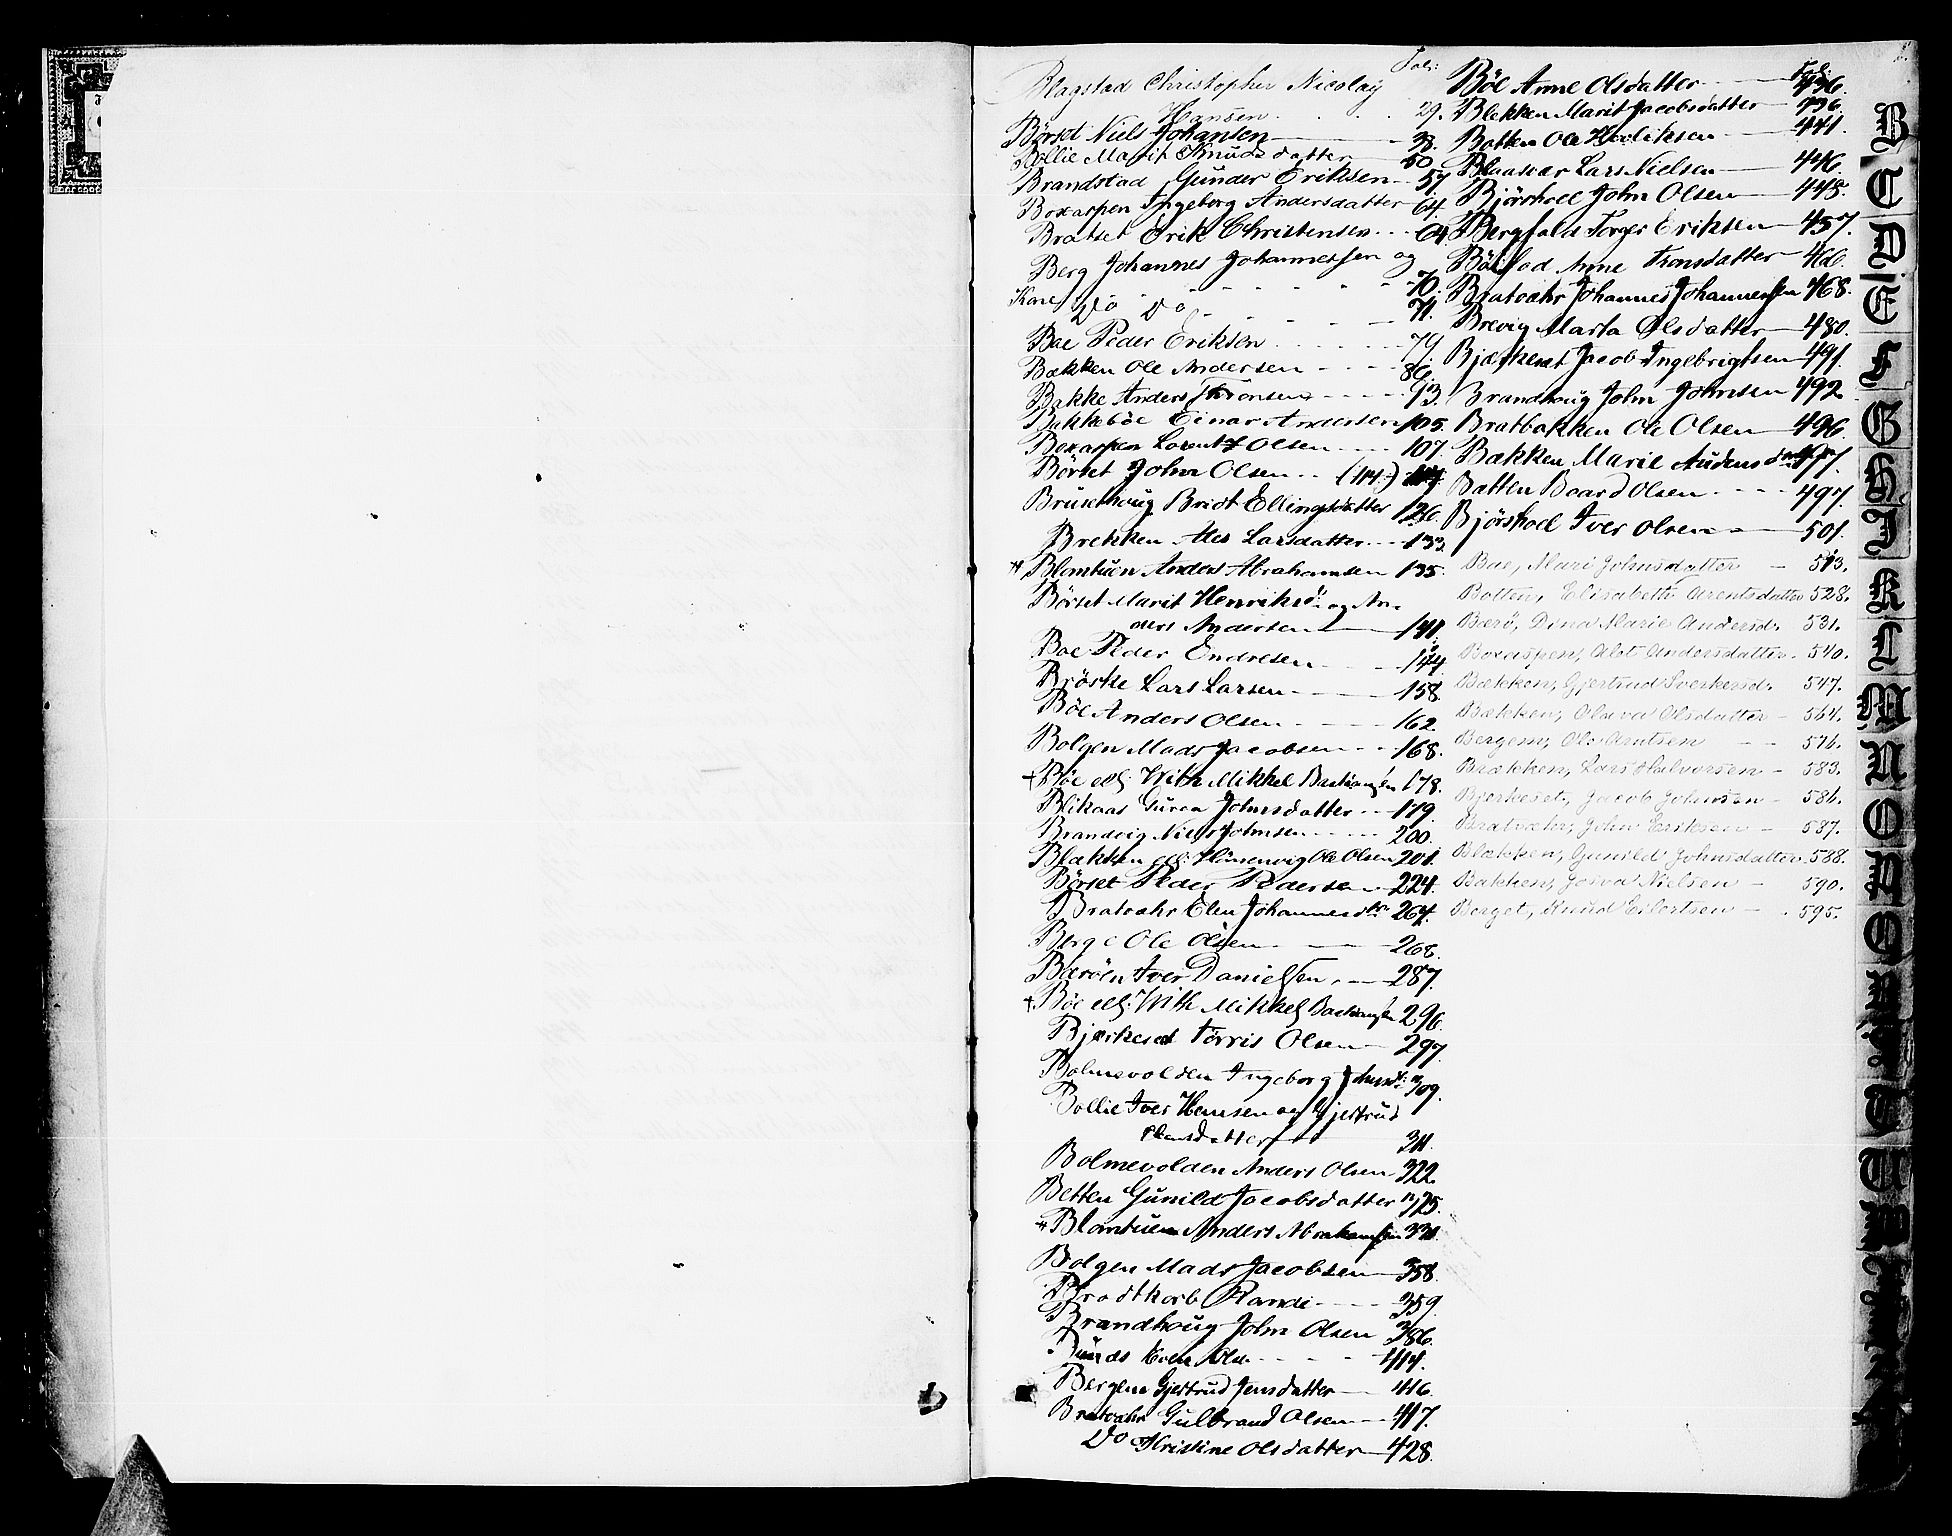 Fol:
Blagstad Christopher Nicolay
Hansen 29.
Börset Niels Johansen 38.
Bollie Marit Knudsdatter 50
Brandstad Gunder Eriksen 57.
Boxaspen Ingeborg Andersdatter 64.
Bratset Erik Christensen 64
Berg Johannes Johannessen og
Kone 70.
Do Do 71.
Bae Peder Eriksen 79.
Bækken Ole Andersen 86.
Bakke Anders Thronsen 93.
Bakkeböe Einar Andersen 105.
Boxaspen Lorentz Olsen 107.
Börset John Olsen (114.)
Brusethoug Bridt Ellingsdatter 126.
Brekken Ales Larsdatter 133
Blomtuen Anders Abrahamsen 135.
Börset Marit Henriksd: og An-
ders Andersen 141.
Boe Peder Endresen 144.
Bröske Lars Larsen 158.
Böe Anders Olsen 162.
Bolgen Mads Jacobsen 168.
+ Böe ell: With Mikkel Bastiansen 178.
Blikaas Guroa Johnsdatter 179.
Brandvig Niels Johnsen 200.
Blækken ell: Ole Olsen 201.
Börset Peder Pedersen 224.
Bratvæhr Elen Johannesdtr 264.
Berg Ole Olsen 268.
Bæröen Iver Danielsen 287.
+ Böe ell: With Mikkel Bastiansen 296.
Bjerkeset Törris Olsen 297.
Bolmevolden Ingeborg Johnsd: 309.
Bollie Iver Hansen og Gjertrud
Hansdatter 311.
Bolmevolden Anders Olsen 322.
Betten Gunild Jacobsdatter 325.
Blomtuen Anders Abrahamsen 331.
Bolgen Mads Jacobsen 358.
Brodtkorb Randi 359.
Brandhoug John Olsen 386.
Even Olsen 414.
Bergem Gjertrud Jensdatter 416.
Bratvæhr Gulbrand Olsen 417.
Do Kristine Olsdatter 428.
Fol:
Böe Anne Olsdatter 436.
Blekken Marit Jacobsdatter 436.
Botten Ole Hendriksen 441.
Blaasvær Lars Nielsen 446.
Björshoel John Olsen 448.
Bergfald Torger Eriksen 457.
Anne Tronsdatter 466.
Bratvæhr Johannes Johannessen 468.
Brevig Marta Olsdatter 480.
Bjerkeset Jacob Ingebrigtsen 491.
Brandhoug John Johnsen 492.
Bratbakken Ole Olsen 496.
Bækken Marie Audensdatter 497.
Batten Baard Olsen 497.
Björshoel Iver Olsen 501.
Bae, Mari Johnsdatter 513.
Botten, Elisabeth Arentsdatter 528.
Bærö, Dina Marie Andersd. 531.
Boxaspen, Alet Andersdatter 540.
Bækken, Gjertrud Sverkersd. 547.
Bækken, Olava Olsdatter 564.
Bergem, Ole Arntsen 576.
Brækken, Lars Halvorsen 583.
Bjerkeset, Jacob Johnsen 586.
Bratvæhr, John Eriksen 587.
Blækken, Gunild Johnsdatter 588.
Bakken, Nielsen 590.
Berget, Knud Eilertsen 595.
B
C
D
E
F
G
H
I
K
L
M
N
O
P
Q
R
S
T
U